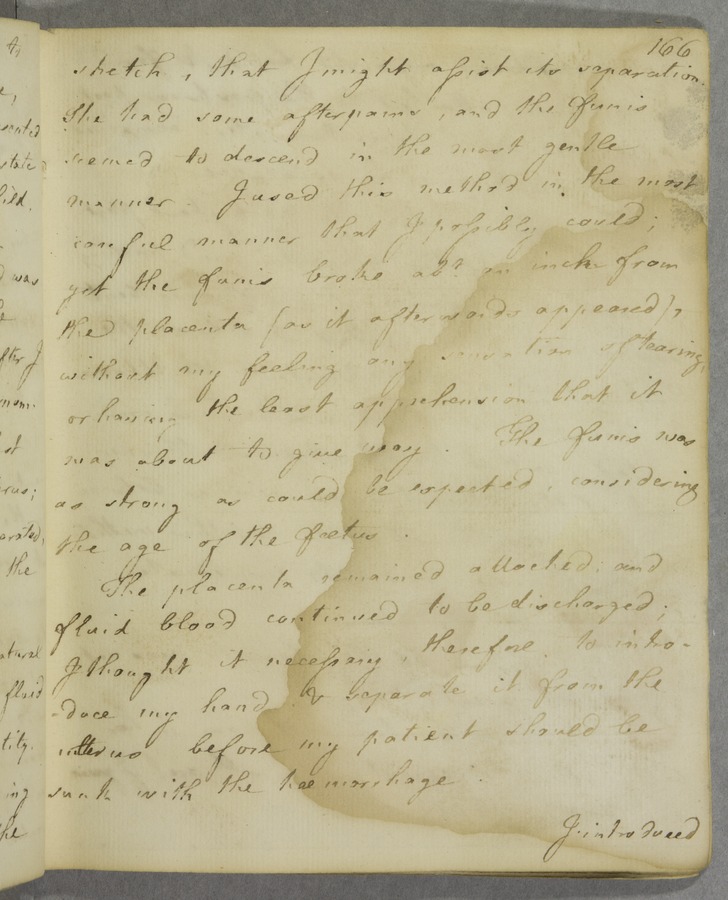 166
stretch, that I might assist its separation.
She had some afterpains, and the funis
seemed to descend in the most gentle
manner. I used this method in the most
careful manner that I possibly could;
yet the funis broke abt. an inch from
the placenta (as it afterwards appeared),
without my feeling any sensation of tearing,
or having the least apprehension that it
was about to give way. The funis was
as strong as could be expected, considering
the age of the foetus.
The placenta remained attached; and
fluid blood continued to be discharged;
I thought it necessary, therefore, to intro-
-duce my hand & separate it from the
uterus before my patient should be
sunk with the haemorrhage.
I introduced